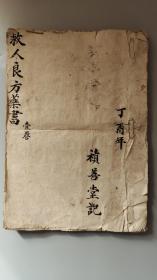 丁酉年
積善堂記
救人良方藥書
壹卷